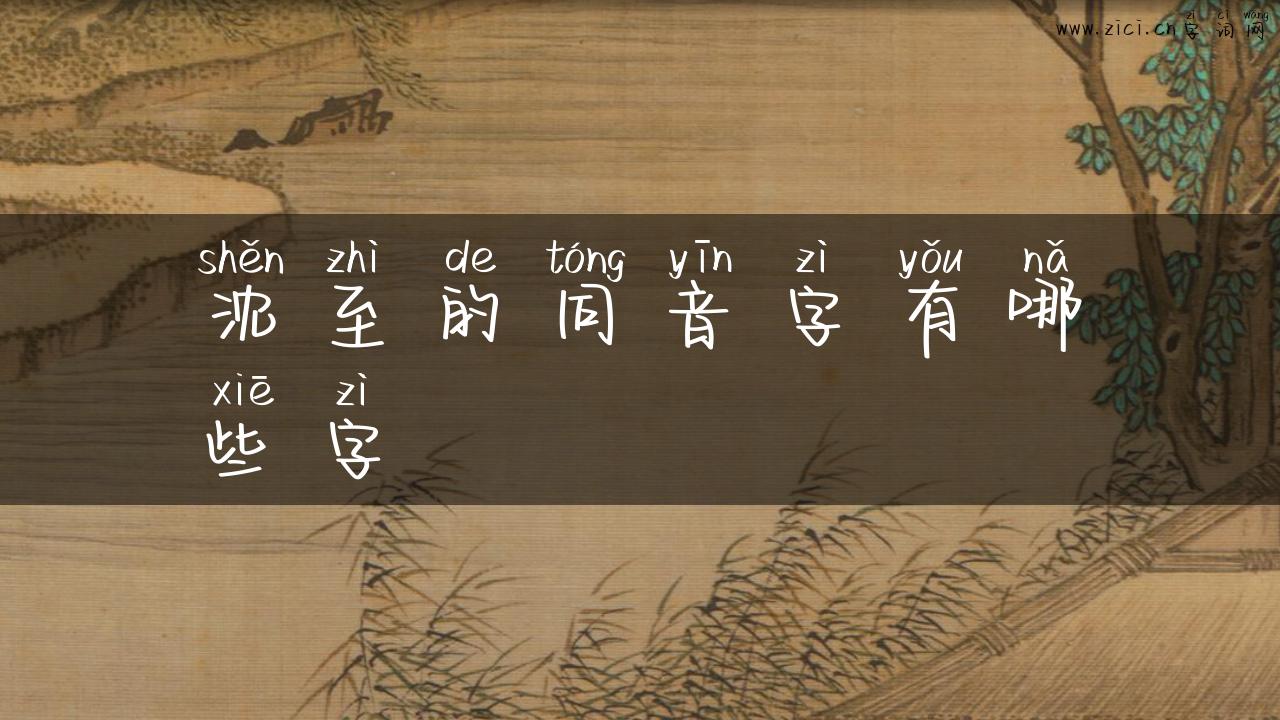 zì cí wǎng
www.zici.cn字词网
shěn zhì de tóng yīn zì yǒu nǎ
沈至的同音字有哪
xiē zì
些字